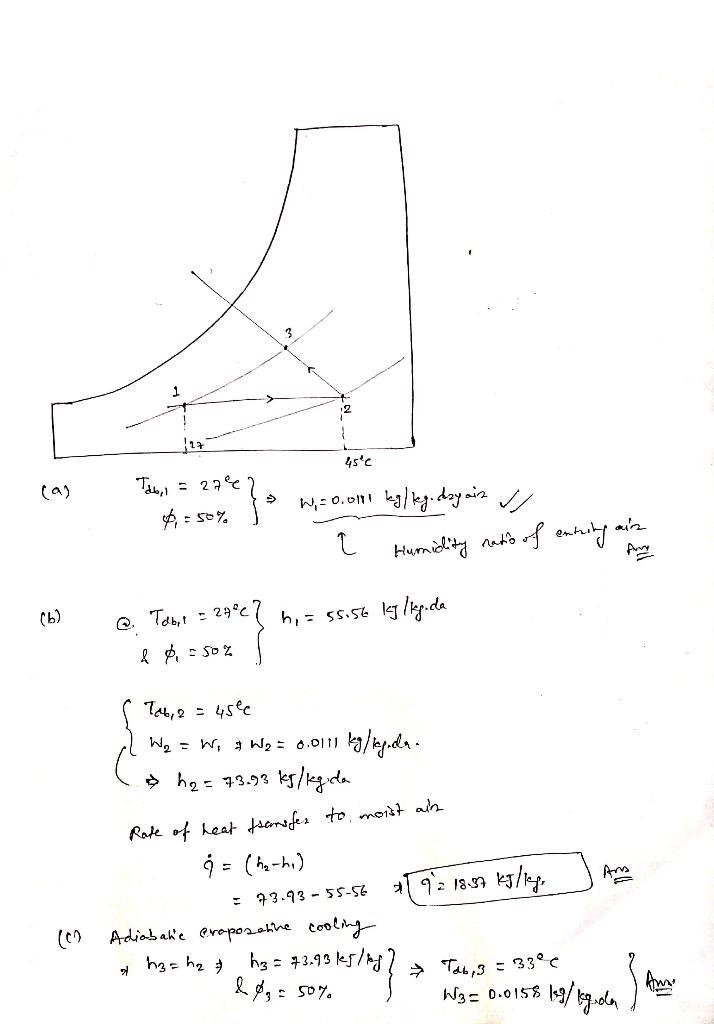 3
1
2
27
45°c
(a) Tdb,1 = 27°c } ⇒ W₁ = 0.0111 kg/kg.dry air ✓✓
ϕ₁ = 50%
↑ Humidity ratio of entring air Ans
(b) @. Tdb,1 = 27°c } h₁ = 55.56 kJ/kg.da
& ϕ₁ = 50%
{ Tdb,2 = 45°c
W₂ = W₁ ⇒ W₂ = 0.0111 kg/kg.da.
⇒ h₂ = 73.93 kJ/kg.da
Rate of heat transfer to moist air
q̇ = (h₂-h₁)
= 73.93 - 55.56 ⇒ q̇ = 18.37 kJ/kg. Ans
(c) Adiabatic evaporative cooling
⇒ h₃ = h₂ ⇒ h₃ = 73.93 kJ/kg } ⇒ Tdb,3 = 33°c } Ans.
& ϕ₃ = 50% W₃ = 0.0158 kg/kg.da